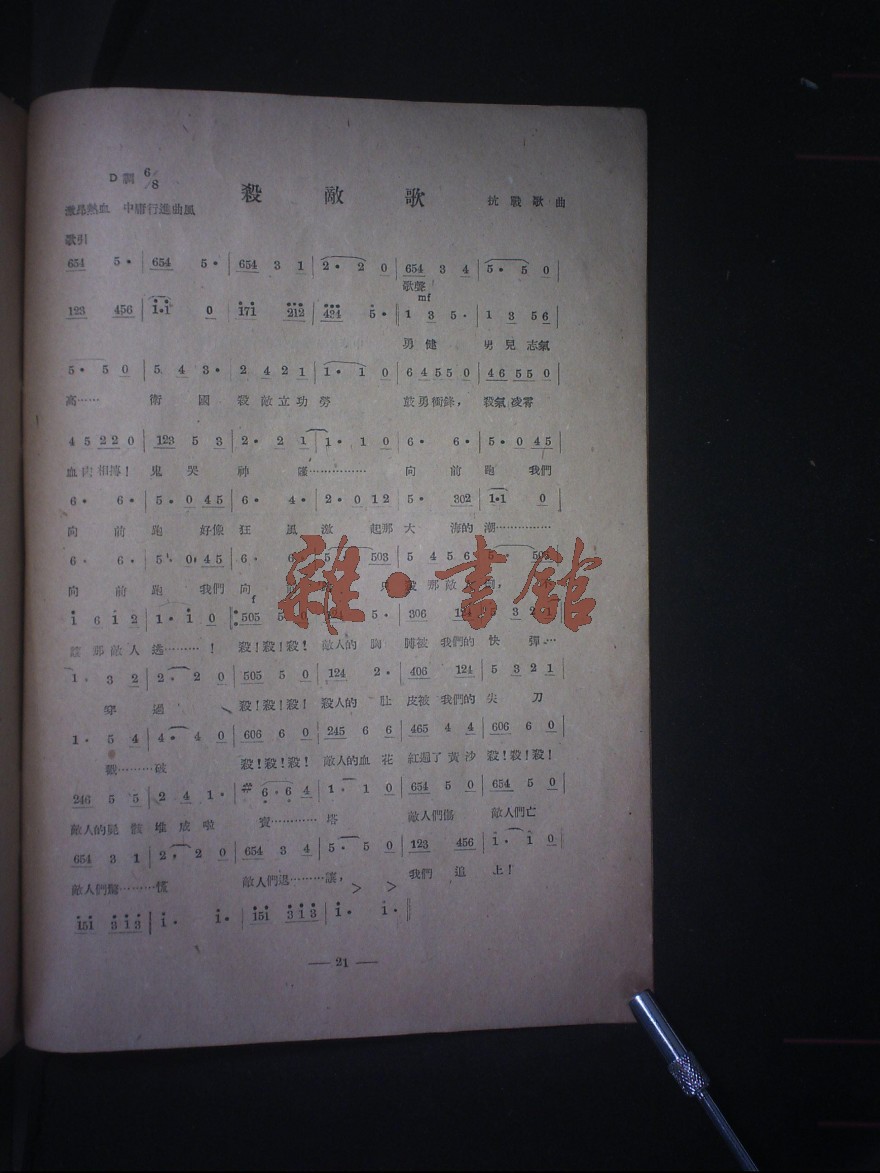 D調 6/8
殺敵歌
抗戰歌曲
激昂熱血 中庸行進曲風
歌引
654 5• | 654 5• | 654 3 1 | 2• 2 0 | 654 3 4 | 5• 5 0 |
歌聲
mf
123 456 | 1•1 0 | 171 212 | 424 5• || 1 3 5• | 1 3 5 6 |
勇健 男兒志氣
5• 5 0 | 5 4 3• | 2 4 2 1 | 1• 1 0 | 6 4 5 5 0 | 4 6 5 5 0 |
高…… 衛國 殺敵立功勞 鼓勇衝鋒， 殺氣凌霄
4 5 2 2 0 | 123 5 3 | 2• 2 1 | 1• 1 0 | 6• 6• | 5• 0 4 5 |
血肉相搏！ 鬼哭神嚎…………… 向前跑 我們
6• 6• | 5• 0 4 5 | 6• 4• | 2• 0 1 2 | 5• 302 | 1•1 0 |
向前跑 好像狂風激起那大海的潮……………
6• 6• | 5• 0 4 5 | 6• 6• | 5• 503 | 5 4 5 6 | 5• 503 |
向前跑 我們向
1 6 1 2 | 1• 1 0 f 505 5 0 | 124 5• | 306 124 | 5 3 2 1 |
讓那敵人逃………！ 殺！殺！殺！ 敵人的胸脯被我們的快彈…
1• 3 2 | 2• 2 0 | 505 5 0 | 124 2• | 406 124 | 5 3 2 1 |
穿過 殺！殺！殺！ 殺人的肚皮被我們的尖刀
1• 5 4 | 4• 4 0 | 606 6 0 | 245 6 6 | 465 4 4 | 606 6 0 |
戳………破 殺！殺！殺！ 敵人的血花紅遍了黃沙 殺！殺！殺！
246 5 5 | 2 4 1• | #6•6 4 | 1• 1 0 | 654 5 0 | 654 5 0 |
敵人的屍骸堆成啦 寶…………塔 敵人們傷 敵人們亡
654 3 1 | 2• 2 0 | 654 3 4 | 5• 5 0 | 123 456 | 1• 1 0 |
敵人們驚………慌 敵人們退………讓， 我們追上！
> >
151 3 1 3 | 1• 1• | 151 3 1 3 | 1• 1• ||
— 21 —
雜•書館